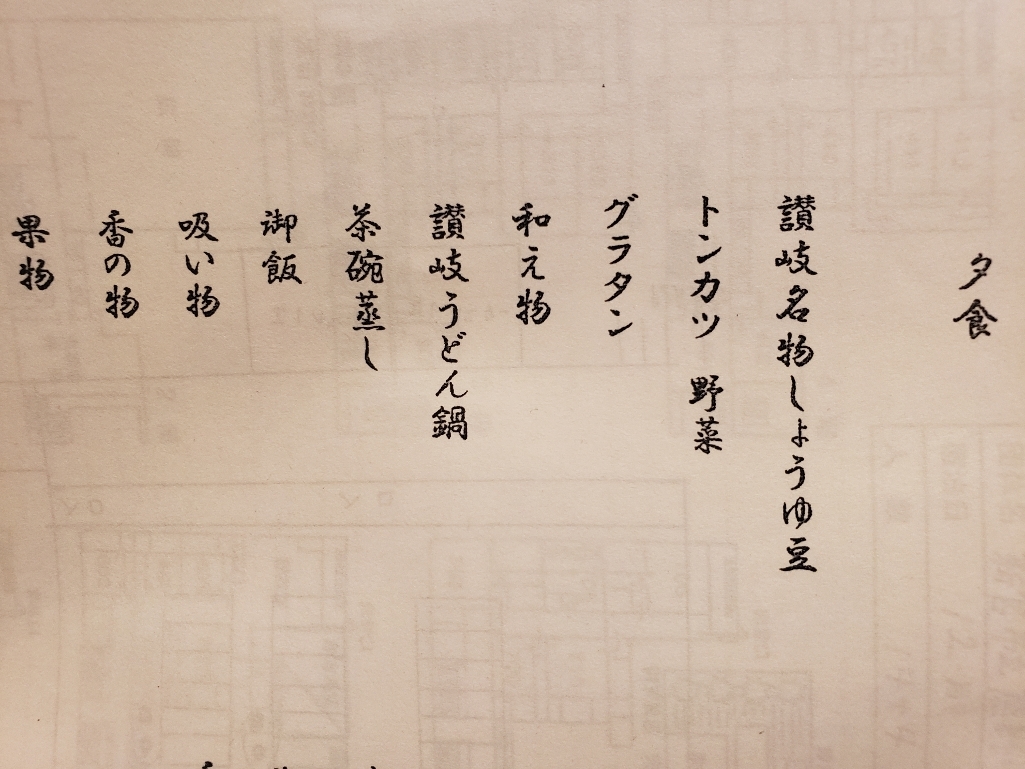 夕食
讃岐名物しょうゆ豆
トンカツ 野菜
グラタン
和え物
讃岐うどん鍋
茶碗蒸し
御飯
吸い物
香の物
果物